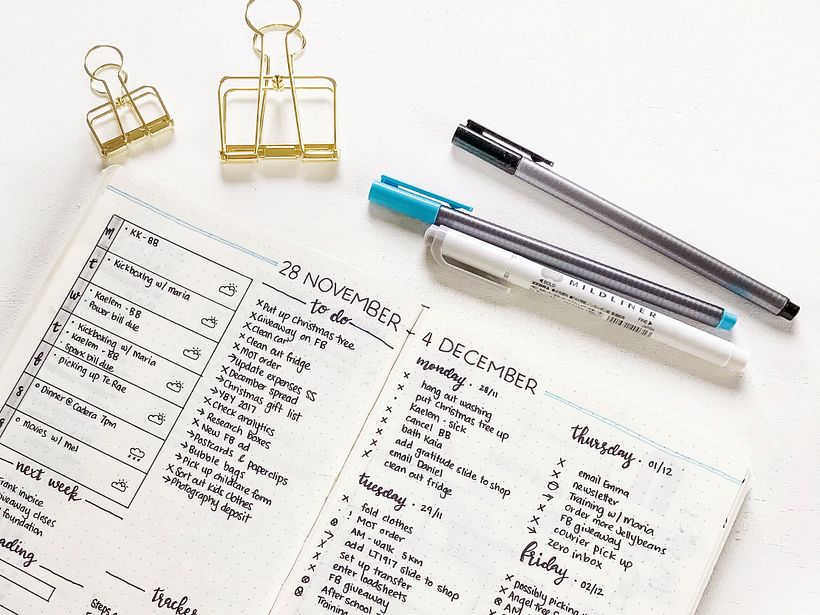 28 NOVEMBER - 4 DECEMBER
m
• KK - BB
t
• Kickboxing w/ maria
w
• Kaelem - BB
• Power bill due
t
• Kickboxing w/ maria
• Kaelem - BB
• Spark bill due
f
• picking up Te Rae
s
o Dinner @ Cadera 7pm
s
o movies w/ mel
next week
giveaway closes
foundation
to do
x Put up christmas tree
x Giveaway on FB
x Clean car
x Clean out fridge
x MOT order
→ Update expenses SS
x December spread
→ Christmas gift list
→ YBY 2017
x Check analytics
→ Research boxes
x New FB ad
→ Postcards & paperclips
→ Bubble bags
→ Pick up childcare form
x Sort out kids clothes
→ Photography deposit
tracker
steps
monday • 28/11
x hang out washing
x put christmas tree up
• Kaelem - sick
x cancel BB
x bath Kaia
x add gratitude slide to shop
x email Daniel
x clean out fridge
tuesday • 29/11
x fold clothes
! MOT order
AM - walk 5km
→ add LT1917 slide to shop
x set up transfer
x enter loadsheets
FB giveaway
After school
Training
thursday • 01/12
x email Emma
x newsletter
Training w/ maria
x order more Jellybeans
→ FB giveaway
x courier pick up
→ zero inbox
friday • 02/12
x possibly picking
x Angel tree
AM
MILDLINER
◀ BOLD
FINE ▶